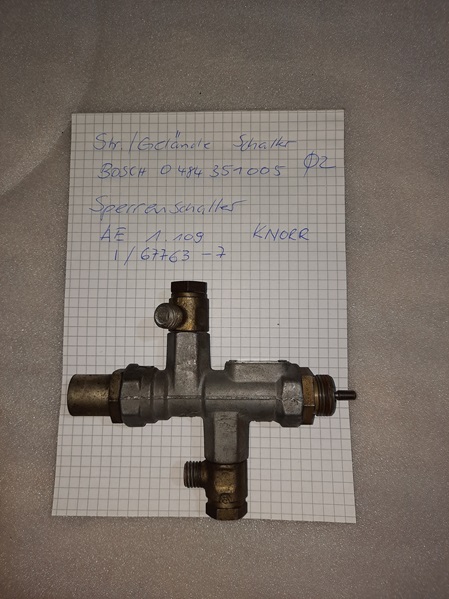 Str./Gelände Schalter
BOSCH 0 484 351 005 Ø2
Sperrenschalter
AE 1 109 KNORR
I/67763-7